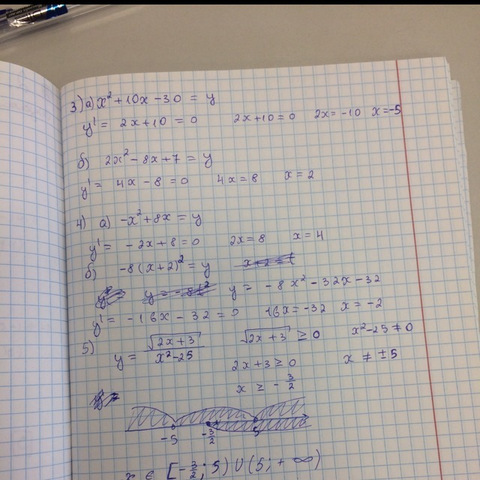 3) а) x² + 10x - 30 = y
y' = 2x + 10 = 0   2x + 10 = 0   2x = -10   x = -5
б) 2x² - 8x + 7 = y
y' = 4x - 8 = 0   4x = 8   x = 2
4) а) -x² + 8x = y
y' = -2x + 8 = 0   2x = 8   x = 4
б) -8(x+2)² = y
y = -8x² - 32x - 32
y' = -16x - 32 = 0   16x = -32   x = -2
5) y = √(2x+3) / (x² - 25)   √(2x+3) ≥ 0   x² - 25 ≠ 0
2x + 3 ≥ 0   x ≠ ±5
x ≥ -3/2
-5   -3/2   5
x ∈ [-3/2; 5) ∪ (5; +∞)